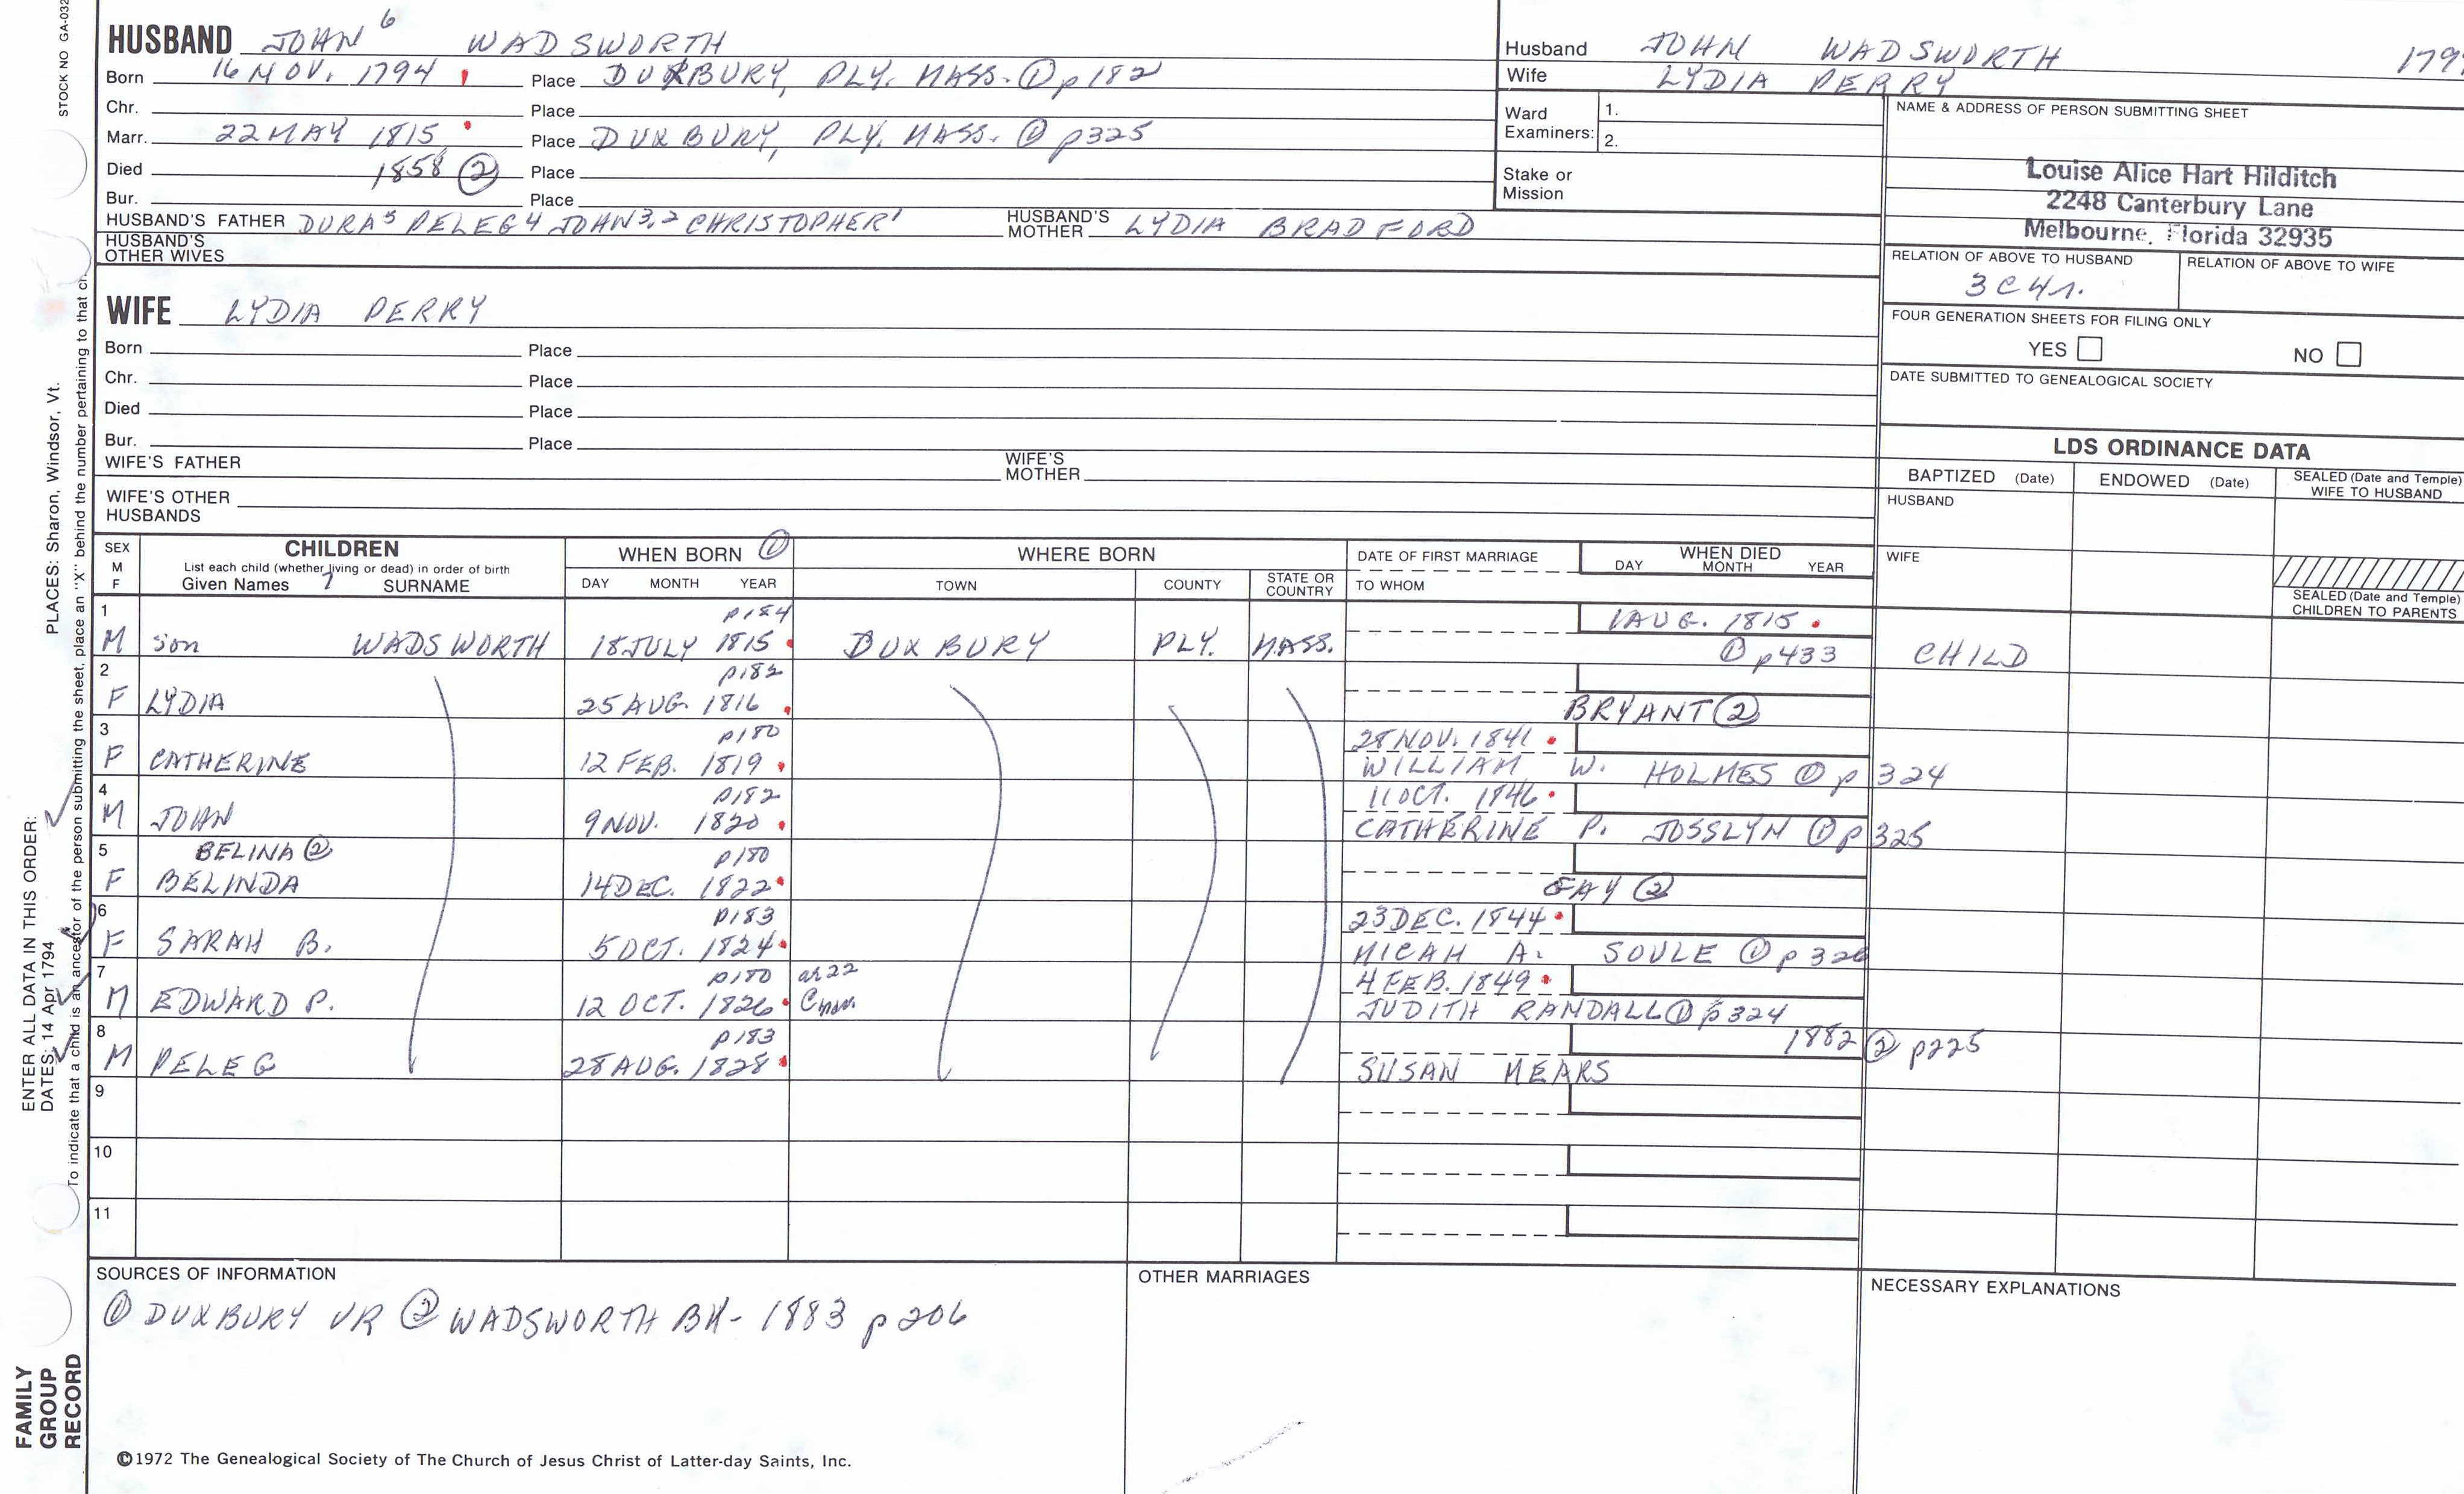 STOCK NO GA-032
HUSBAND JOHN 6 WADSWORTH
Born 16 NOV. 1794 Place DUXBURY, PLY. MASS. ① p182
Chr. Place
Marr. 22 MAY 1815 Place DUXBURY, PLY. MASS. ① p325
Died 1858 ② Place
Bur. Place
HUSBAND'S FATHER DURA5 PELEG4 JOHN3,2 CHRISTOPHER1 HUSBAND'S MOTHER LYDIA BRADFORD
HUSBAND'S OTHER WIVES
Husband JOHN WADSWORTH
Wife LYDIA PERRY
Ward Examiners: 1.
2.
Stake or Mission
NAME & ADDRESS OF PERSON SUBMITTING SHEET
Louise Alice Hart Hilditch
2248 Canterbury Lane
Melbourne, Florida 32935
RELATION OF ABOVE TO HUSBAND RELATION OF ABOVE TO WIFE
3C4r.
FOUR GENERATION SHEETS FOR FILING ONLY
YES NO
DATE SUBMITTED TO GENEALOGICAL SOCIETY
WIFE LYDIA PERRY
Born Place
Chr. Place
Died Place
Bur. Place
WIFE'S FATHER WIFE'S MOTHER
WIFE'S OTHER HUSBANDS
LDS ORDINANCE DATA
BAPTIZED (Date) ENDOWED (Date) SEALED (Date and Temple) WIFE TO HUSBAND
HUSBAND
WIFE
SEALED (Date and Temple) CHILDREN TO PARENTS
SEX M F CHILDREN WHEN BORN ① WHERE BORN DATE OF FIRST MARRIAGE WHEN DIED
List each child (whether living or dead) in order of birth
Given Names 7 SURNAME DAY MONTH YEAR TOWN COUNTY STATE OR COUNTRY TO WHOM DAY MONTH YEAR
1 p184 1 AUG. 1815
M son WADSWORTH 18 JULY 1815 DUXBURY PLY. MASS. ① p433 CHILD
2 p182
F LYDIA 25 AUG. 1816 BRYANT ②
3 p180 28 NOV. 1841
F CATHERINE 12 FEB. 1819 WILLIAM W. HOLMES ① p 324
4 p182 11 OCT. 1846
M JOHN 9 NOV. 1820 CATHERINE P. JOSSLYN ① p 325
5 BELINA ② p180
F BELINDA 14 DEC. 1822 GAY ②
6 p183 23 DEC. 1844
F SARAH B. 5 OCT. 1824 MICAH A. SOULE ① p 326
7 p180 4 FEB. 1849
M EDWARD P. 12 OCT. 1826 JUDITH RANDALL ① p324
8 p183 1882 ② p225
M PELEG 28 AUG. 1828 SUSAN MEARS
9
10
11
SOURCES OF INFORMATION
① DUXBURY VR ② WADSWORTH BK- 1883 p 206
OTHER MARRIAGES
NECESSARY EXPLANATIONS
©1972 The Genealogical Society of The Church of Jesus Christ of Latter-day Saints, Inc.
FAMILY
GROUP
RECORD
ENTER ALL DATA IN THIS ORDER:
DATES: 14 Apr 1794 PLACES: Sharon, Windsor, Vt.
To indicate that a child is an ancestor of the person submitting the sheet, place an "X" behind the number pertaining to that